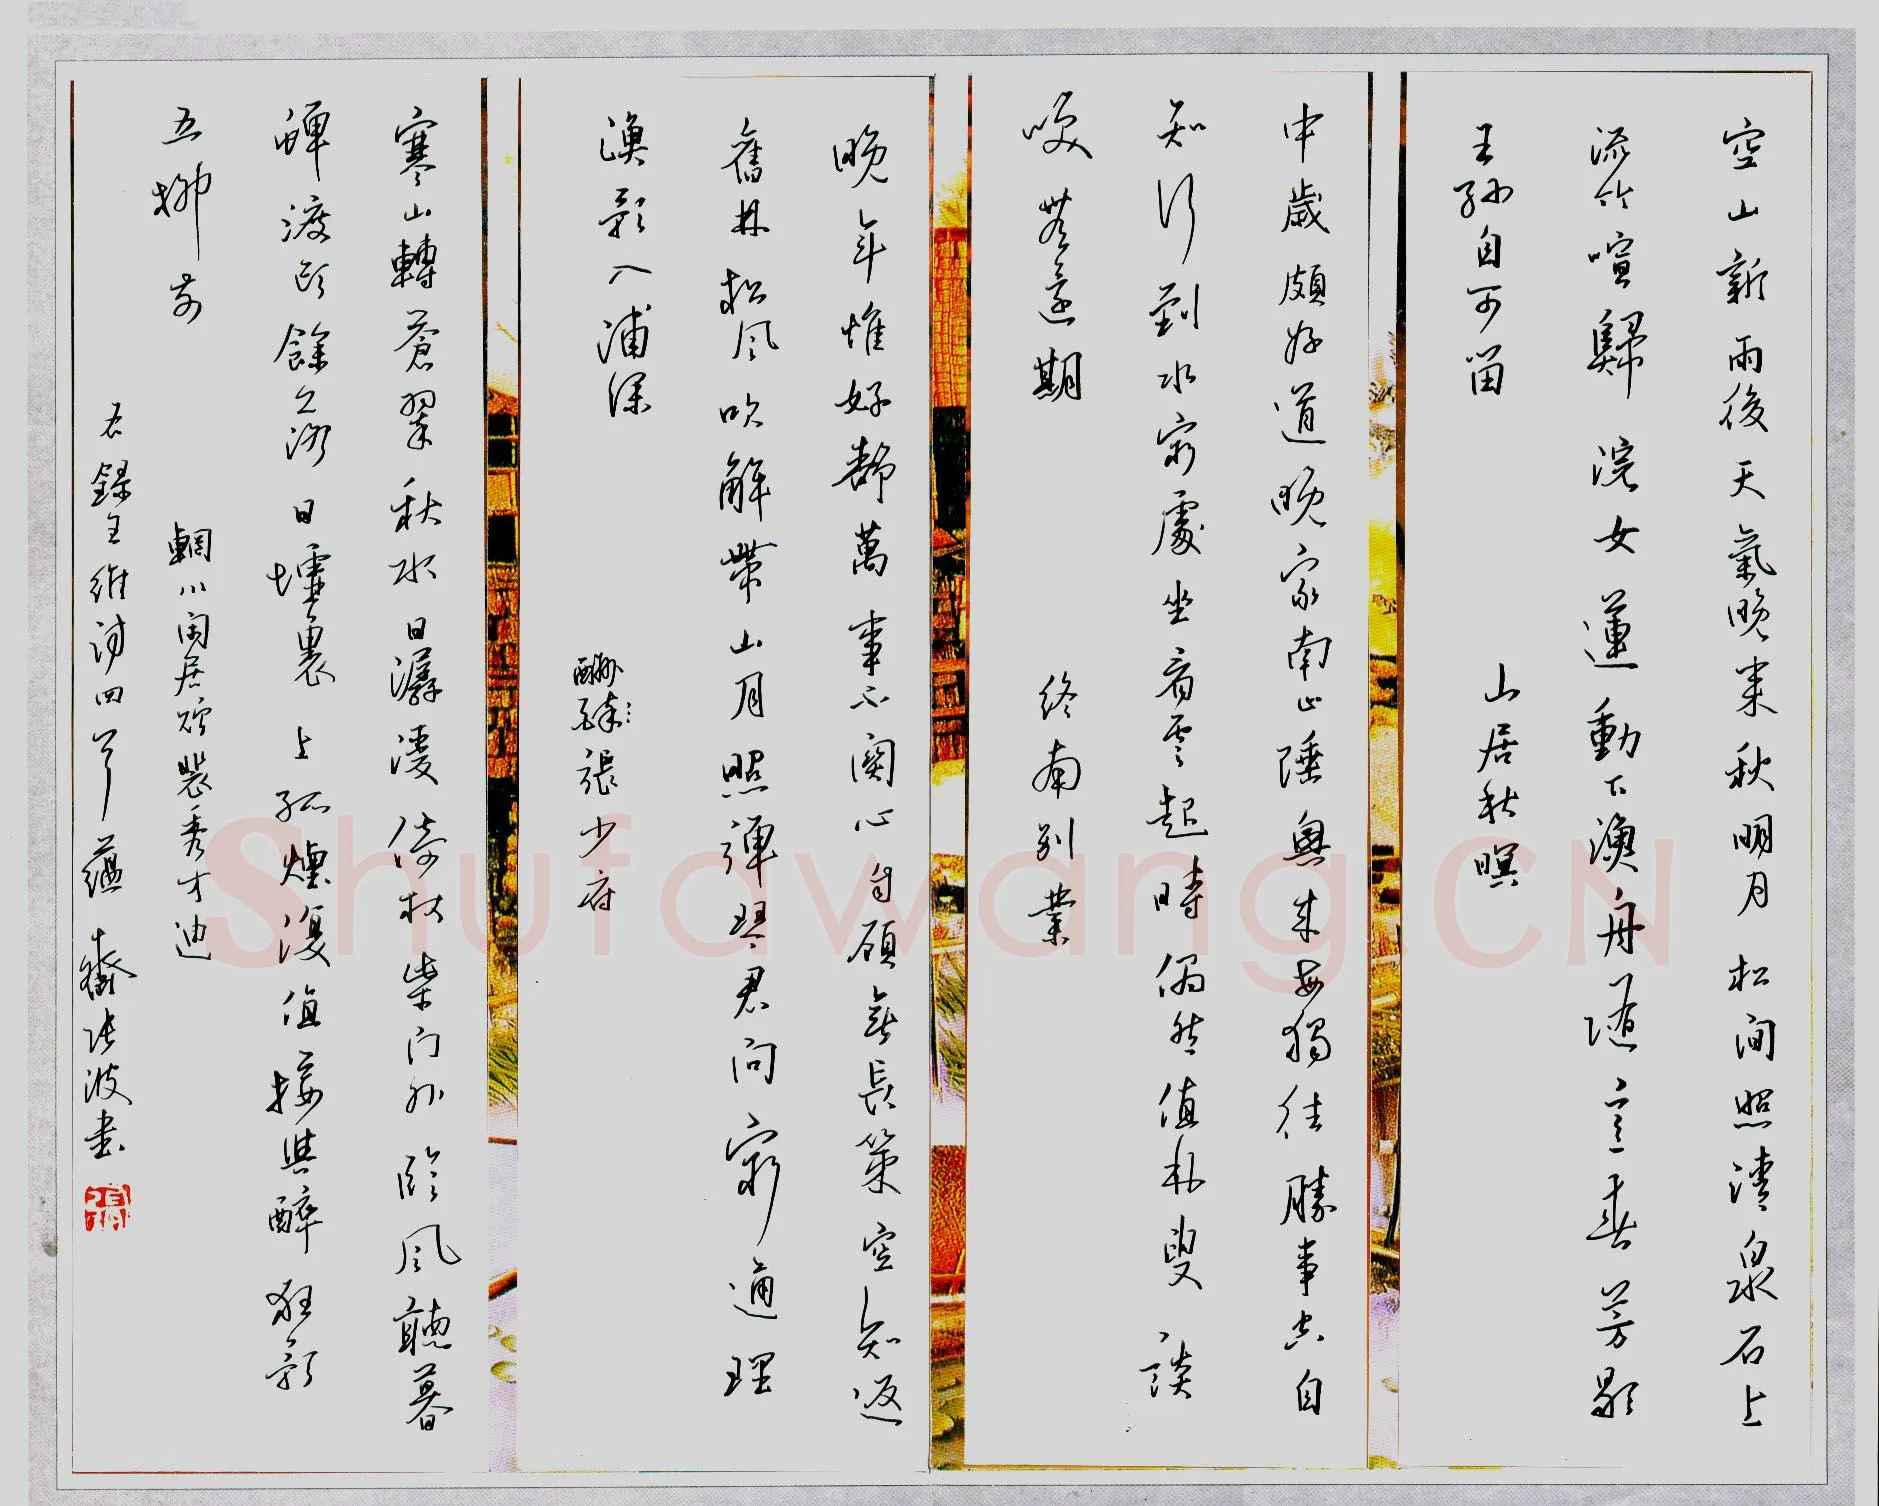 空山新雨後天氣晚來秋明月松間照清泉石上
流竹喧歸浣女蓮動下漁舟隨意春芳歇
王孫自可留
山居秋暝
中歲頗好道晚家南山陲興來每獨往勝事空自
知行到水窮處坐看雲起時偶然值林叟談
咲無還期
終南別業
晚年惟好靜萬事不關心自顧無長策空知返
舊林松風吹解帶山月照彈琴君問窮通理
漁歌入浦深
酬張少府
寒山轉蒼翠秋水日潺湲倚杖柴門外臨風聽暮
蟬渡頭餘落日墟裏上孤煙復值接輿醉狂歌
五柳前
輞川閑居贈裴秀才迪
右錄王維詩四首蘊齋張波書
Shufawang.CN